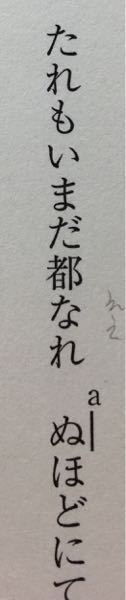 たれもいまだ都なれaぬほどにて